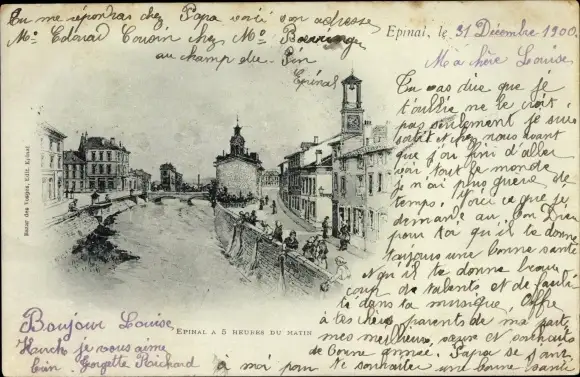 Tu me répondras chez Papa voici son adresse
Mr. Edouard Cousin chez Mr. Barringer
au champ du Pin
Epinal
Epinal, le 31 Décembre 1900.
Ma chère Louise
Tu vas dire que je
t'oublie ne le crois
pas seulement je suis
chez nous avant
que j'ai fini d'aller
voir tout le monde
je n'ai plus guère de
temps. Voici ce que je
demande au bon Dieu
pour toi qu'il te donne
toujours une bonne santé
qu'il te donne beau
coup de talents et de facili
té dans ta musique, Offre
à tes chers parents de ma part
mes meilleurs vœux et souhaits
de bonne année. Papa se joint
à moi pour te souhaiter une bonne santé
Bazar des Vosges, Edit. Epinal
EPINAL A 5 HEURES DU MATIN
Bonjour Louise
je vous aime
bien. Georgette Richard